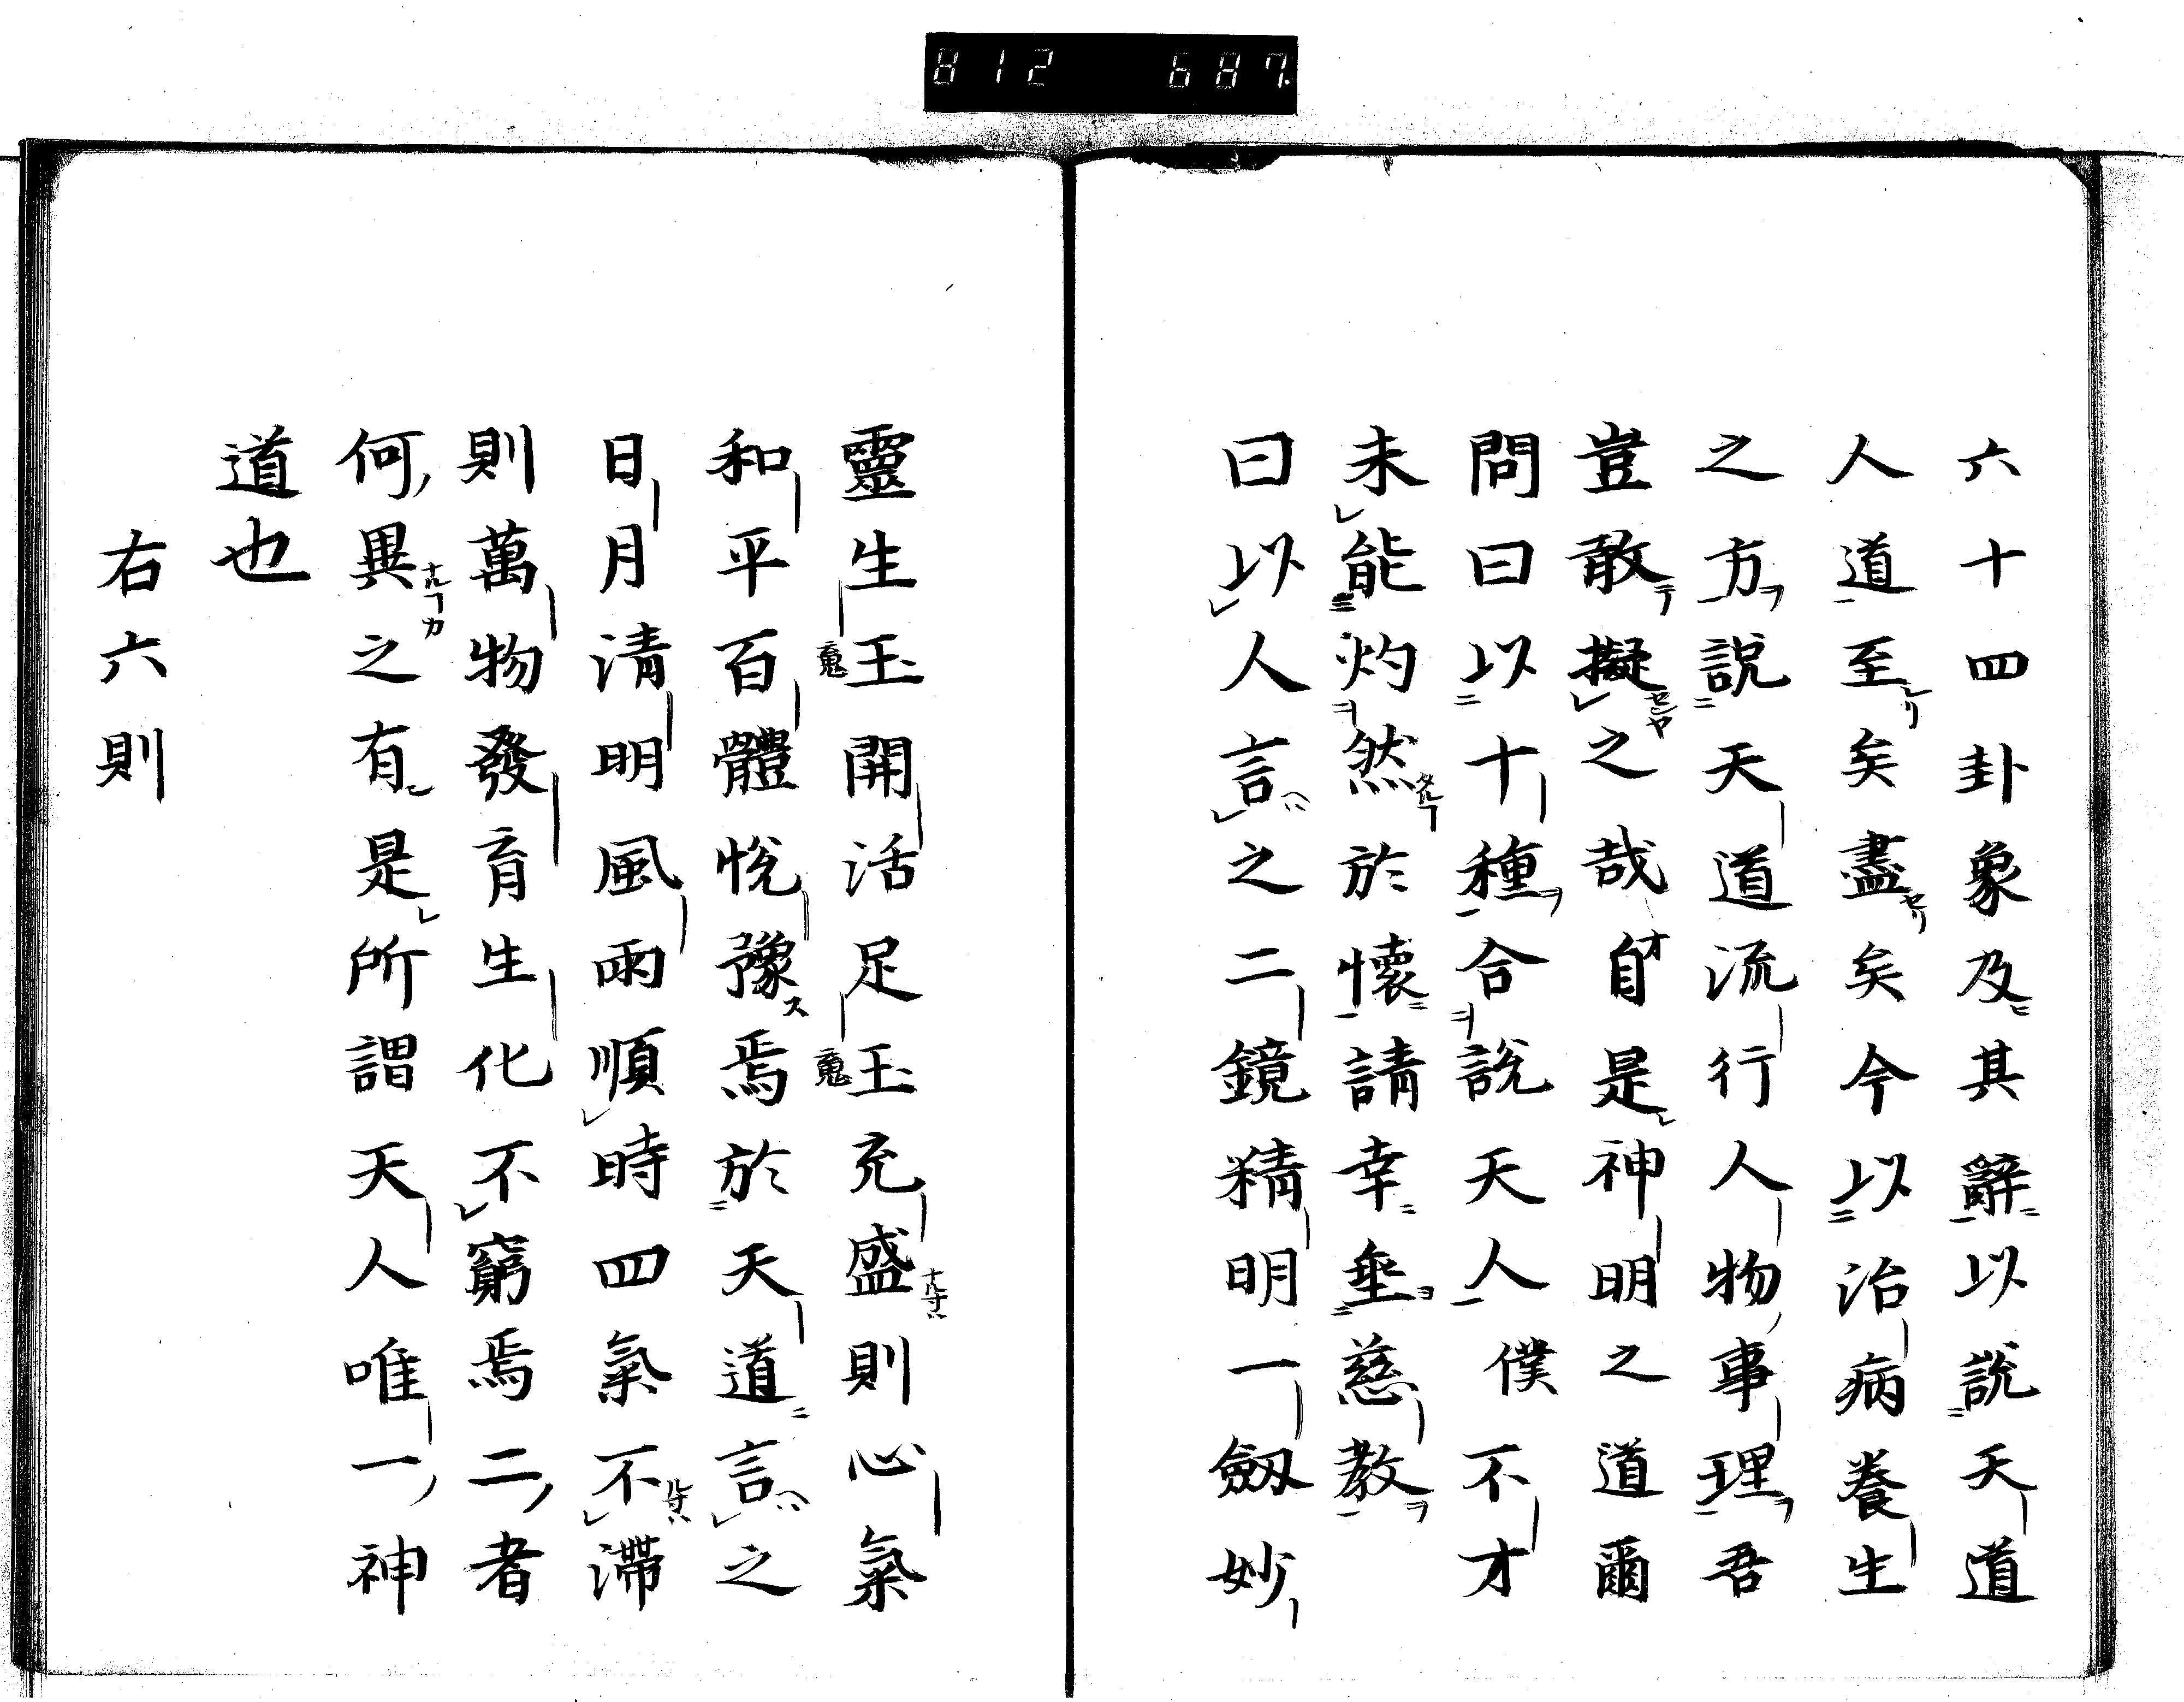 812 687
六十四卦象及其辭以説天道
人道至矣盡矣今以治病養生
之方説天道流行人物事理吾
豈敢擬之哉自是神明之道爾
問曰以十種合説天人僕不才
未能灼然於懷請幸垂慈教
曰以人言之二鏡精明一劔妙
靈生玉開活足玉充盛則心氣
和平百體悦豫焉於天道言之
日月清明風雨順時四氣不滯
則萬物發育生化不窮焉二者
何異之有是所謂天人唯一神
道也
右六則